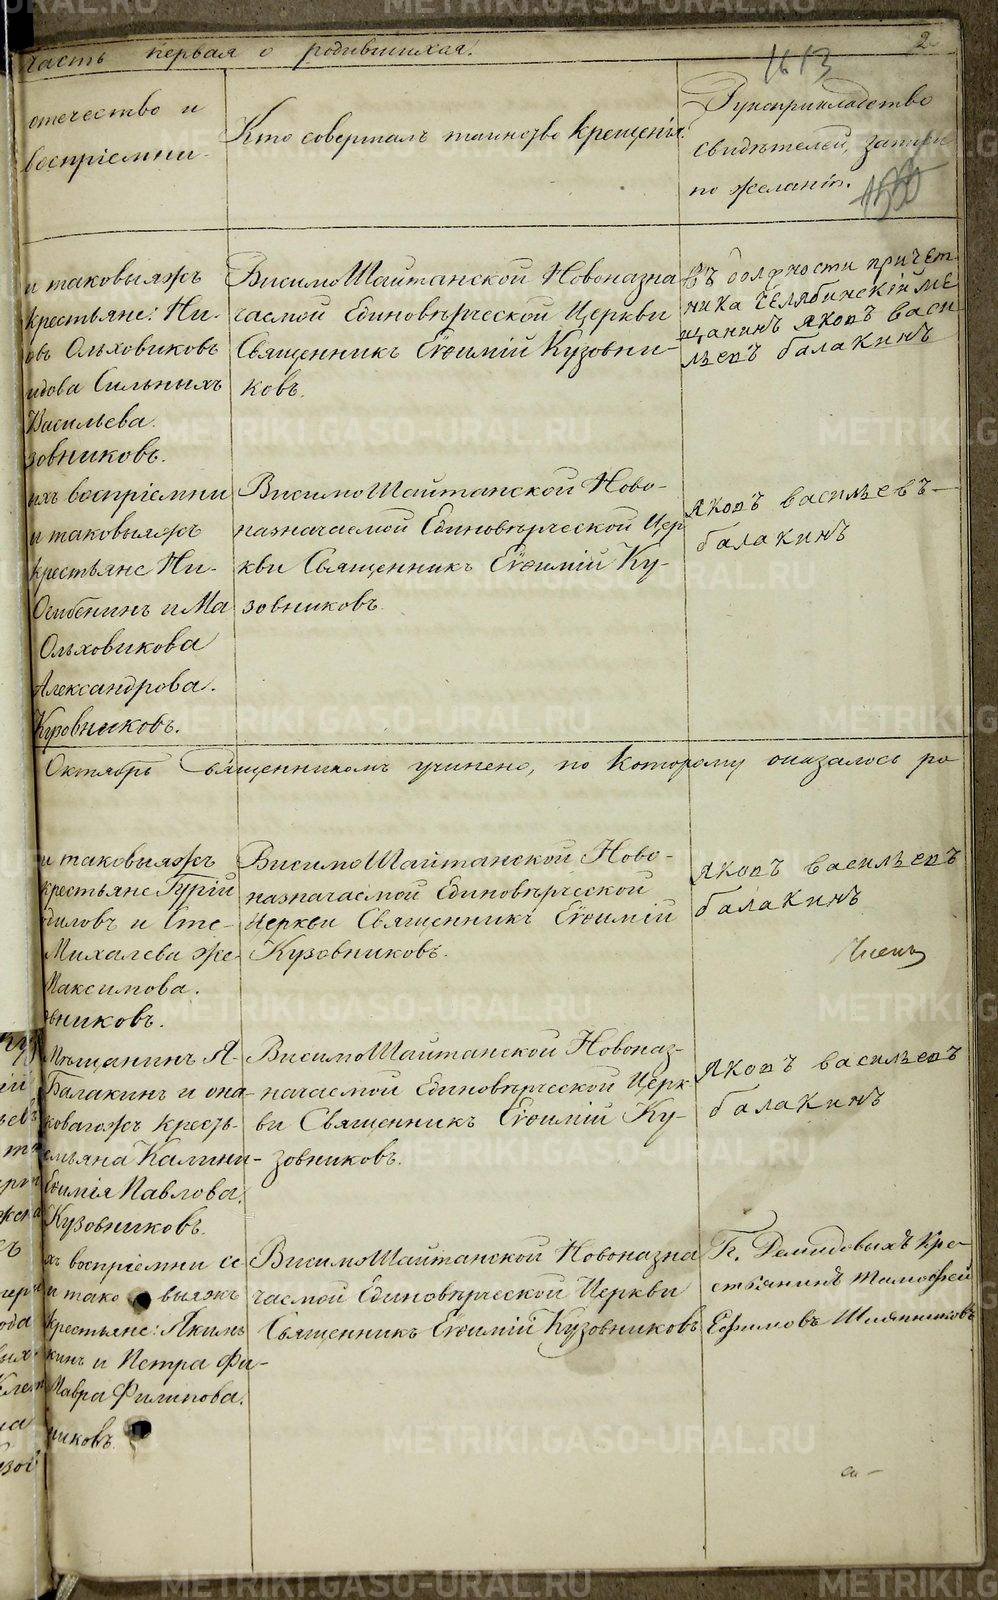 часть первая о родившихся.
2
1613
отечество и
воспріемни-
Кто совершалъ таинство крещенія.
Рукоприкладство
свидѣтелей, записи
по желанію.
и таковыяжъ
крестьяне: Ни-
овъ Ольховиковъ
идова Сильныхъ
Васильева.
зовниковъ.
ВисимоШайтанской Новоназна
чаемой Единовѣрческой Церкви
Священникъ Евѳимій Кузовни-
ковъ.
Въ должности причет
ника Челябинскій ме
щанинъ яковъ васи
льевъ балакинъ
ихъ воспріемни
и таковыяжъ
крестьяне Ни-
Осибенинъ и Ма
Ольховикова
Александрова.
Кузовниковъ.
ВисимоШайтанской Ново-
назначаемой Единовѣрческой Цер
кви Священникъ Евѳимій Ку-
зовниковъ
яковъ васильевъ
балакинъ
Октябрь Священникомъ учинено, по которому оказалось ро
и таковыяжъ
крестьяне Гурій
диловъ и Сте-
Михалева же-
Максимова.
вниковъ.
ВисимоШайтанской Ново-
назначаемой Единовѣрческой
Церкви Священникъ Евѳимій
Кузовниковъ.
яковъ васильевъ
балакинъ
Мѣщанинъ Я-
Балакинъ и она-
ковагожъ кресть-
емьяна Калини-
Евѳимія Павлова.
Кузовниковъ.
ВисимоШайтанской Новоназ-
начаемой Единовѣрческой Церк
ви Священникъ Евѳимій Ку-
зовниковъ.
яковъ васильевъ
балакинъ
хъ воспріемни се
и тако выяжъ
крестьяне: Якимъ
кинъ и Петра Фи-
Мавра Филипова.
никовъ.
ВисимоШайтанской Новоназна
чаемой Единовѣрческой Церкви
Священникъ Евѳимій Кузовниковъ
Г. Демидовыхъ Кре-
стьянинъ Тимофей
Ефимовъ
METRIKI.GASO-URAL.RU